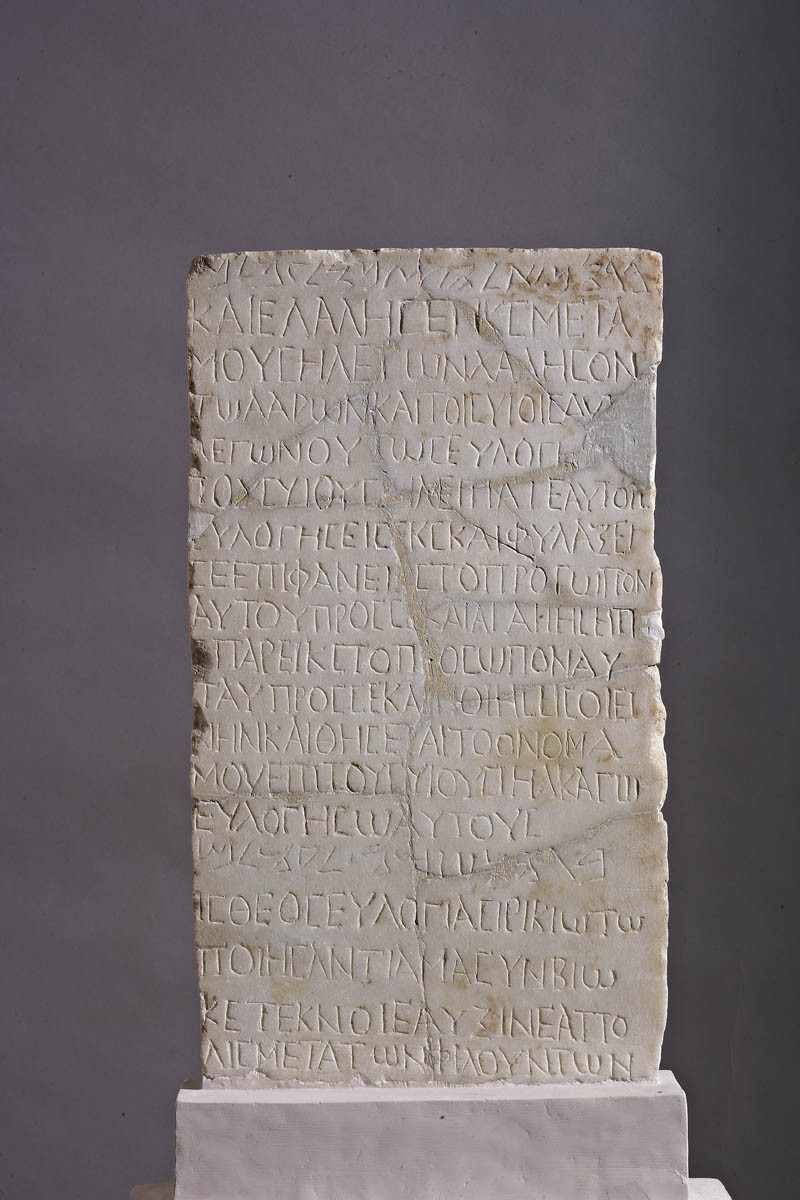 ࠁࠓࠅࠊ ࠀࠋࠄࠉࠍࠅ ࠋࠏࠅࠋࠌ
ΚΑΙΕΛΑΛΗϹΕΝΚϹΜΕΤΑ
ΜΟΥϹΗΛΕΓΩΝΧΑΛΗϹΟΝ
ΤΩΑΑΡΩΝΚΑΙΤΟΙϹΥΙΟΙϹΑΥ
ΛΕΓΩΝΟΥΤΩϹΕΥΛΟΓΗ
ΤΟΥϹΥΙΟΥϹΙΗΛΕΙΠΑΤΕΑΥΤΟΙϹ
ΕΥΛΟΓΗϹΕΙϹΕΚϹΚΑΙΦΥΛΑΞΕΙ
ϹΕΕΠΙΦΑΝΕΙΚϹΤΟΠΡΟϹΩΠΟΝ
ΑΥΤΟΥΠΡΟϹϹΕΚΑΙΑΓΑΠΗϹΕΙ
ΕΠΑΡΕΙΚϹΤΟΠΡΟϹΩΠΟΝΑΥ
ΤΑΥΠΡΟϹϹΕΚΑΙΠΟΙΗϹΕΙϹΟΙΕΙ
ΝΗΝΚΑΙΘΗϹΕΤΑΙΤΟΟΝΟΜΑ
ΜΟΥΕΠΙΤΟΥϹΥΙΟΥϹΙΗΛΚΑΓΩ
ΕΥΛΟΓΗϹΩΑΥΤΟΥϹ
ࠁࠓࠅࠊ ࠔࠌࠅ ࠋࠏࠅࠋࠌ
ΙϹΘΕΟϹΕΥΛΟΓΙΑϹΙΡΙΚΙΩΤΩ
ΠΟΙΗϹΑΝΤΙΑΜΑϹΥΝΒΙΩ
ΚΕΤΕΚΝΟΙϹΑΥΞΙΝΕΑΠΟ
ΛΙϹΜΕΤΑΤΩΝΦΙΛΟΥΝΤΩΝ